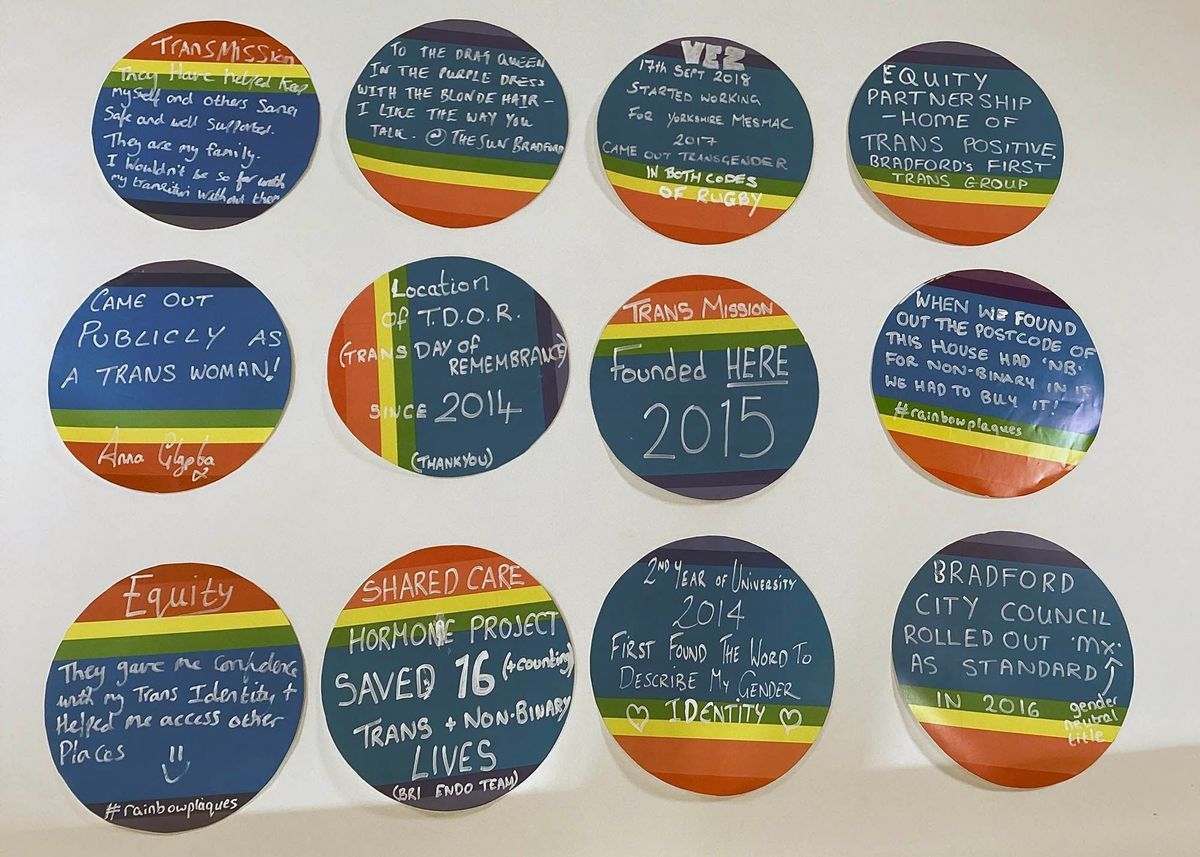 TRANSMISSion
They Have Helped Keep
myself and others Saner
Safe and well Supported.
They are my family.
I wouldn't be so far with
my transition without them
TO THE DRAG QUEEN
IN THE PURPLE DRESS
WITH THE BLONDE HAIR –
I LIKE THE WAY YOU
TALK. @ THE SUN BRADFORD
VEZ
17th SEPT 2018
STARTED WORKING
FOR YORKSHIRE MESMAC
2017
CAME OUT TRANSGENDER
IN BOTH CODES
OF RUGBY
EQUITY
PARTNERSHIP
– HOME OF
TRANS POSITIVE
BRADFORD'S FIRST
TRANS GROUP
CAME OUT
PUBLICLY AS
A TRANS WOMAN!
Anna
Location
of T.D.O.R.
(TRANS DAY of
REMEMBRANCE)
SINCE 2014
(THANKYOU)
TRANS MISSION
Founded HERE
2015
WHEN WE FOUND
OUT THE POSTCODE OF
THIS HOUSE HAD 'NB'
FOR NON-BINARY IN IT
WE HAD TO BUY IT!
#rainbowplaques
Equity
They gave me confidence
with my Trans Identity +
Helped me access other
Places
#rainbowplaques
SHARED CARE
HORMONE PROJECT
SAVED 16 (+counting)
TRANS + NON-BINARY
LIVES
(BRI ENDO TEAM)
2ND YEAR OF UNIVERSITY
2014
FIRST FOUND THE WORD TO
DESCRIBE MY GENDER
IDENTITY
BRADFORD
CITY COUNCIL
ROLLED OUT 'MX'
AS STANDARD
IN 2016
gender
neutral
title